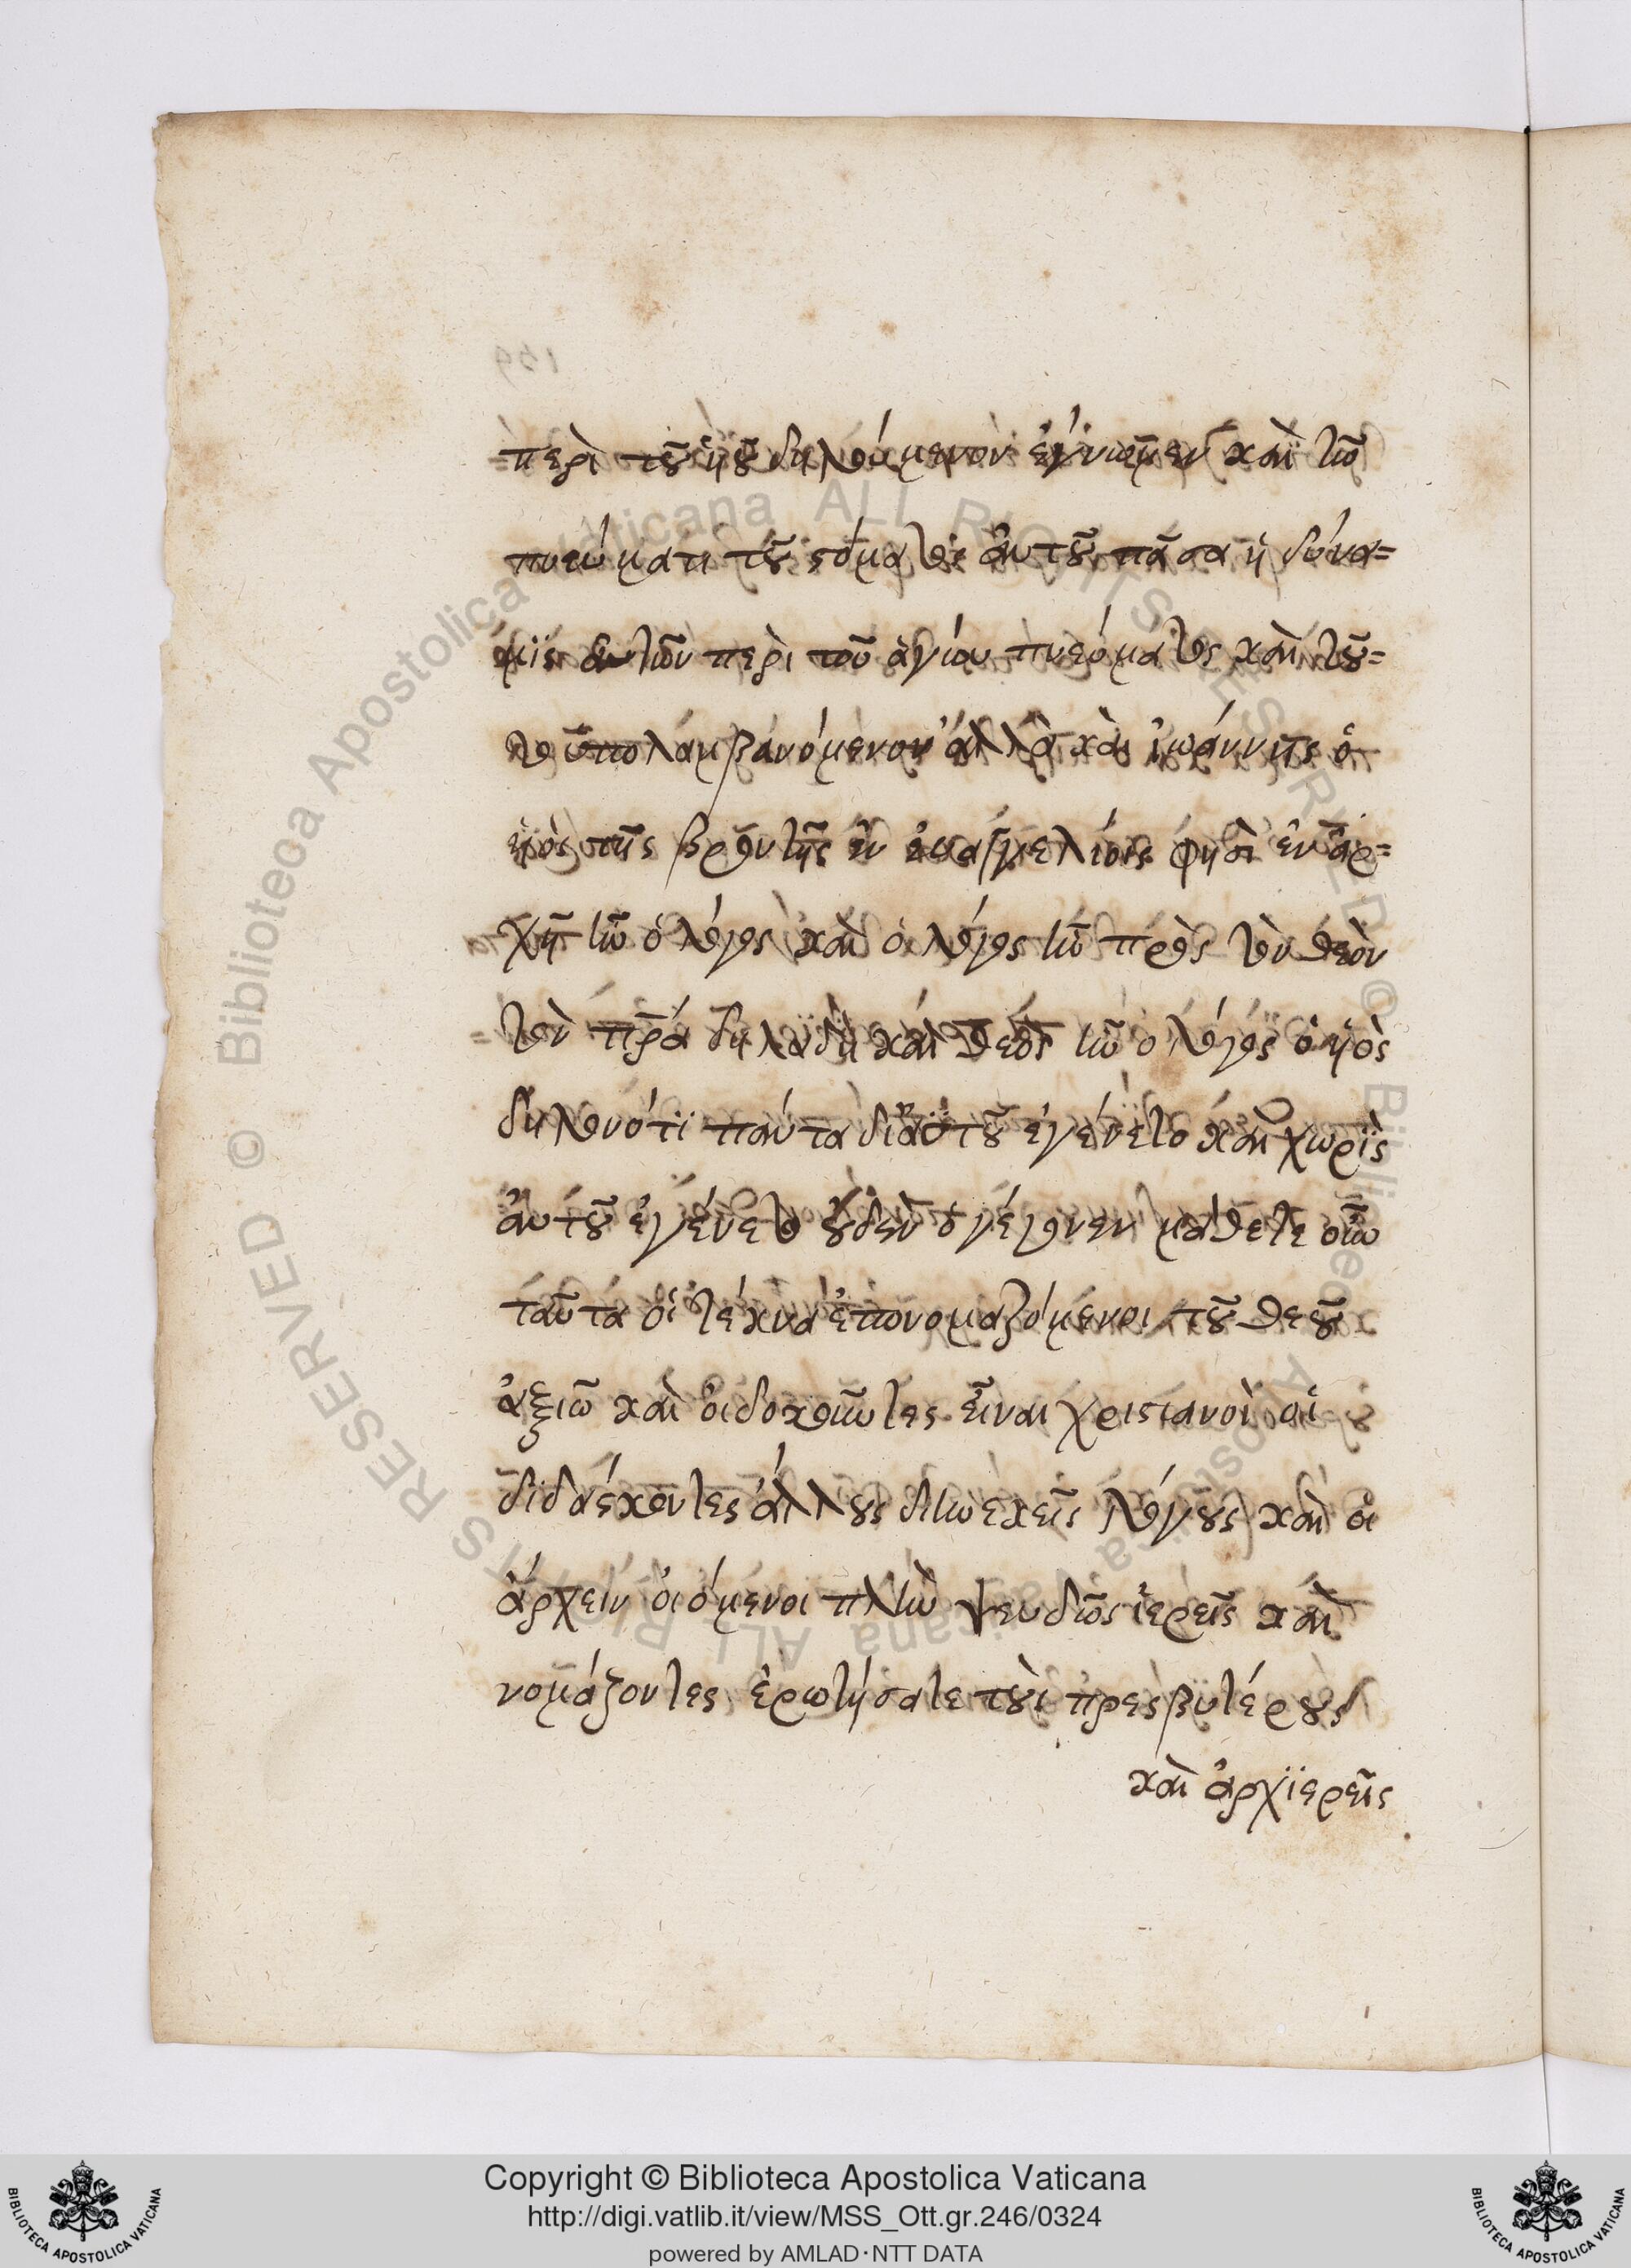 περὶ τοῦ ὑοῦ δηλούμενον ἔγνωμεν καὶ τῶ
πνεύματι τοῦ στόματος ἀυτοῦ πᾶσα ἡ δύνα=
μϊς ἀυτῶν περὶ τοῦ ἁγίου πνεύματος καὶ τοῦ=
το ὑπολαμβανόμενον ἀλλὰ καὶ ἰωάννης ὁ
ὑϊὸς τῆς βροντῆς ἐν ἐυαγγελίοις φησὶ ἐν ἀρ=
χῆ ἦν ὁ λόγος καὶ ὁ λόγος ἦν πρὸς τὸν θεὸν
τὸν πρ̅α δηλαδὴ καὶ θεὸς ἦν ὁ λόγος ὁ ὑὸς
δηλονότϊ πάντα δι ἀυτοῦ ἐγένετο καὶ χωρὶς
ἀυτοῦ ἐγένετο οὐδὲν ὃ γέγονεν μάθετε οὖν
ταῦτα οἱ τέκνα ἐπονομαζόμενοι τοῦ θεοῦ
ἀξιῶ καὶ οἱ δοκοῦντες εἶναι χριστιανοὶ οἱ
διδάσκοντες ἄλλους διωκεῖς λόγους καὶ οἱ
ἄρχειν οἰόμενοι πλὴν ψευδῶς ἱερεῖς καὶ
νομάζοντες ἐρωτήσατε τοὺς πρεσβυτέρους
καὶ ἀρχϊερεῖς
Copyright © Biblioteca Apostolica Vaticana
http://digi.vatlib.it/view/MSS_Ott.gr.246/0324
powered by AMLAD·NTT DATA
BIBLIOTECA APOSTOLICA VATICANA
BIBLIOTECA APOSTOLICA VATICANA